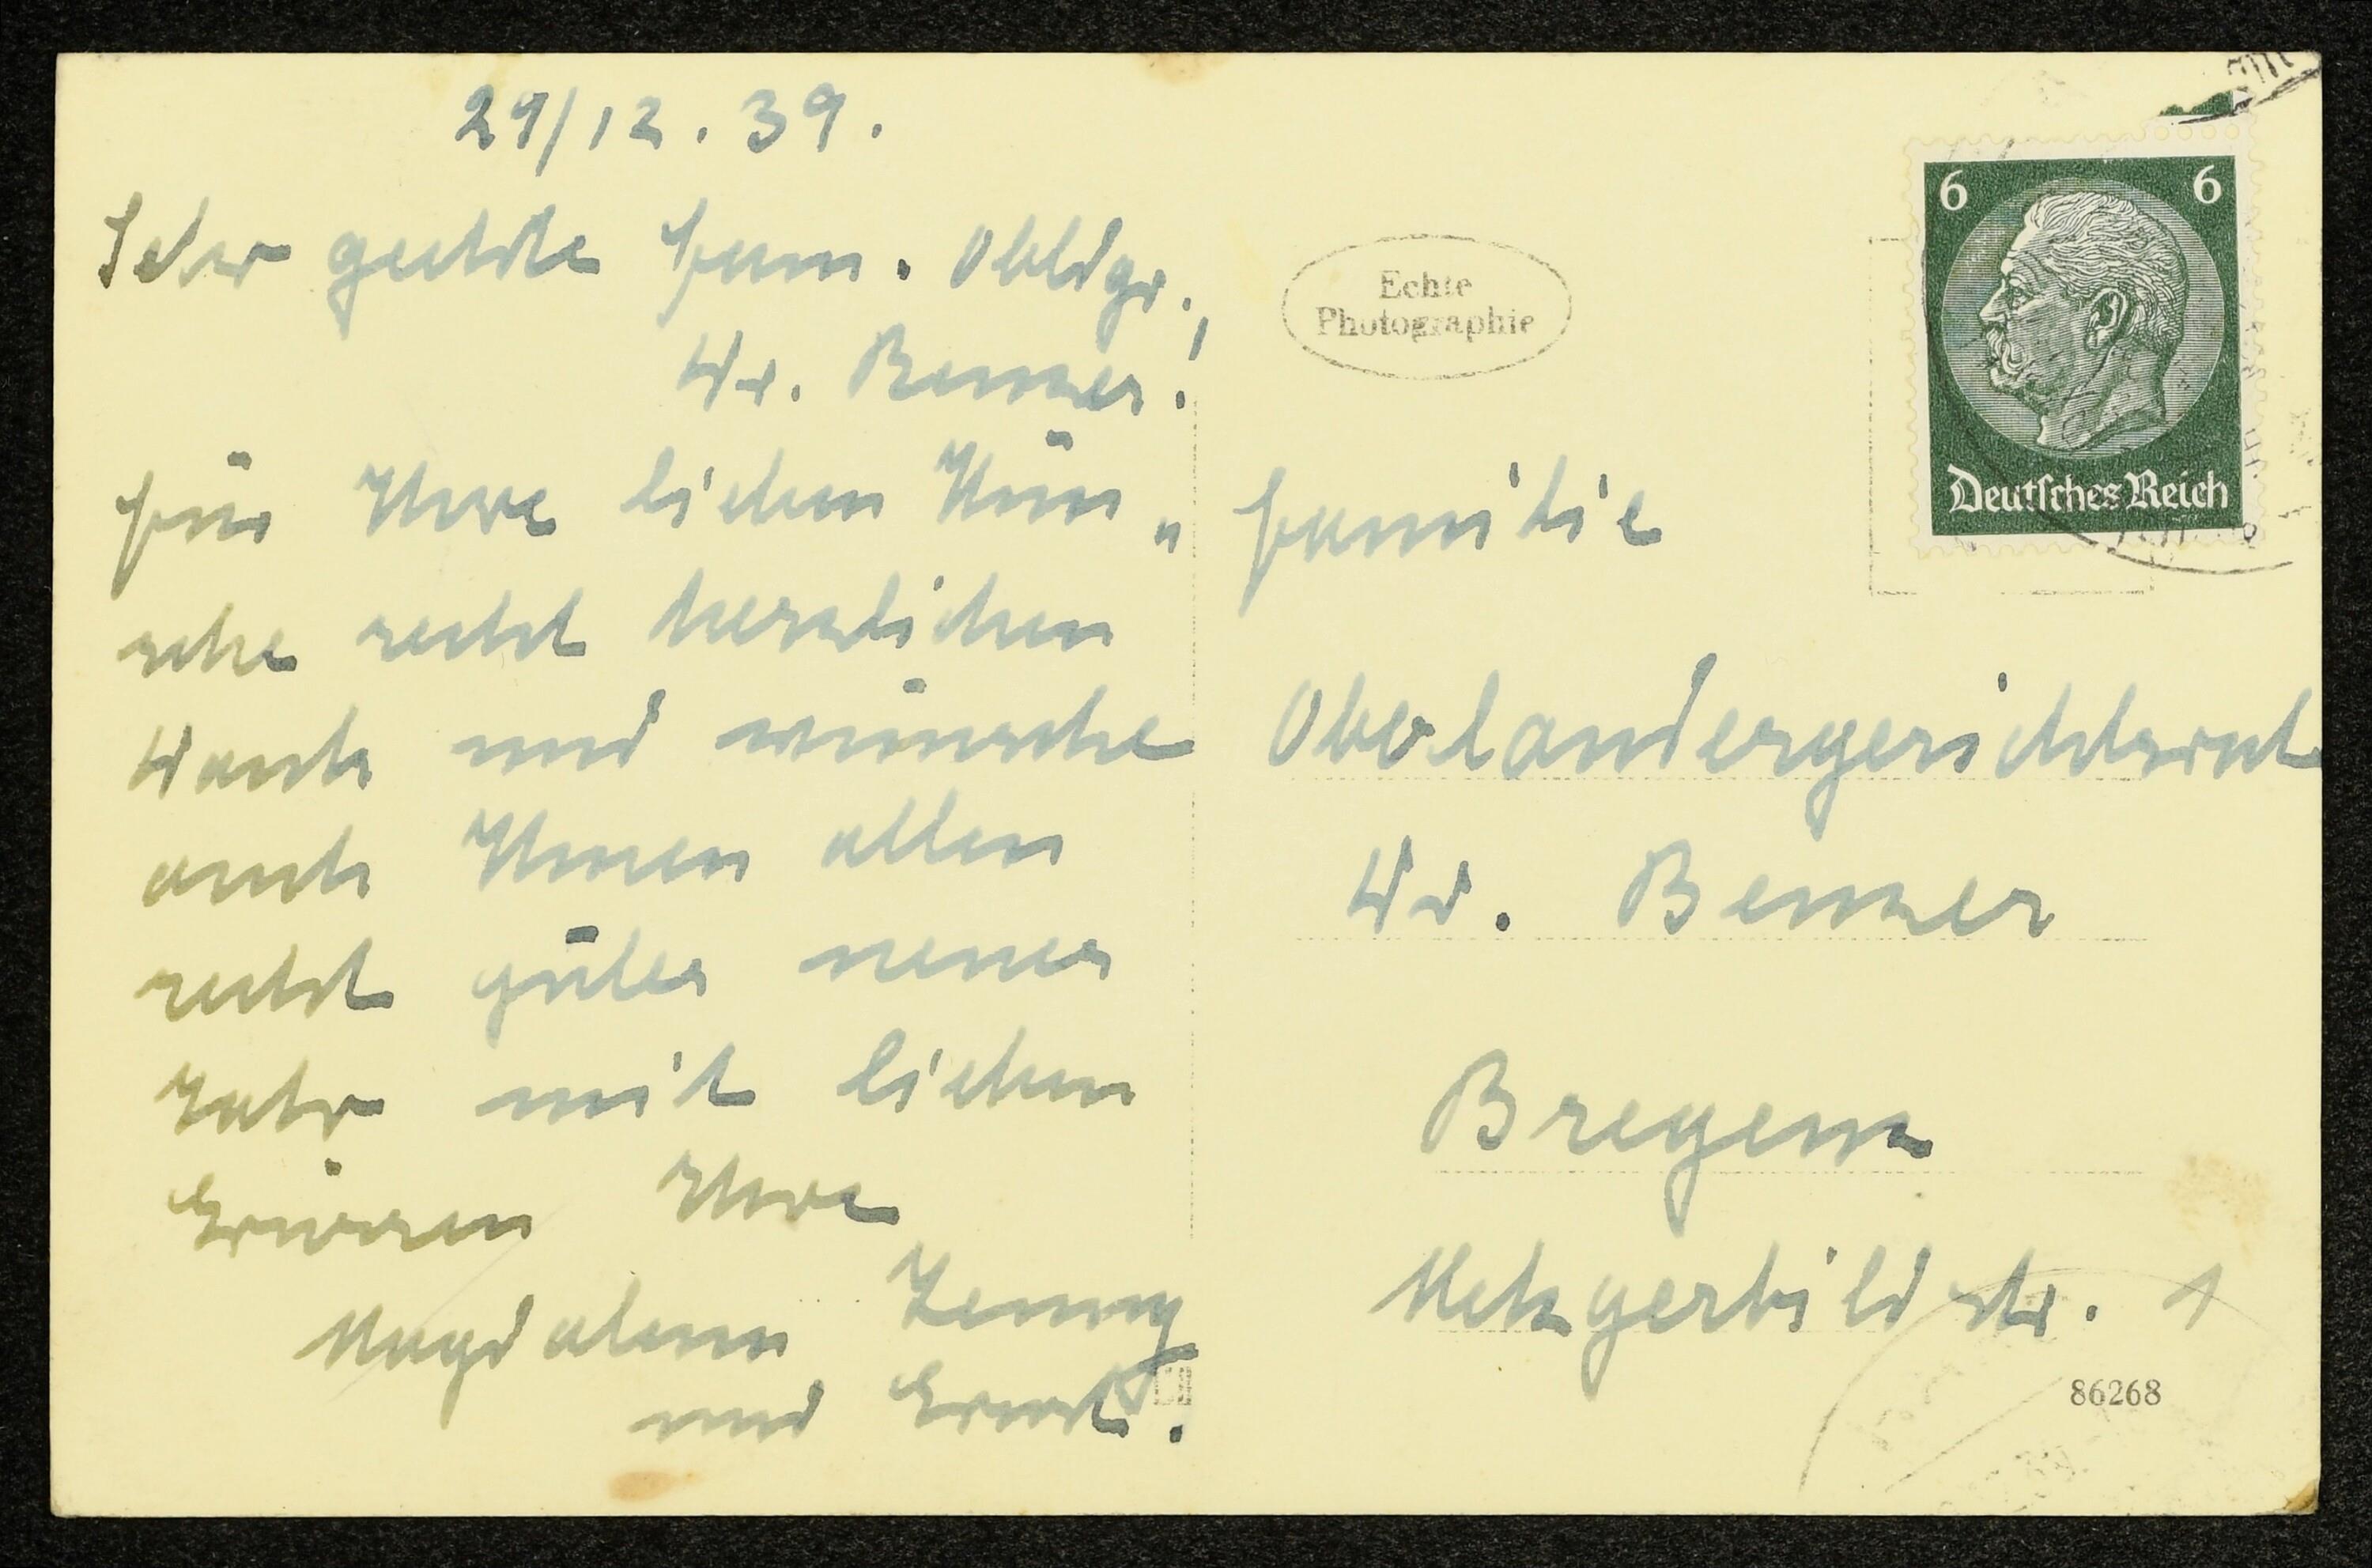 29/12.39.
Sehr geehrte Fam. Obldgr.,
Dr. Benzer!
Für Ihre lieben Wün„
sche recht herzlichen
Dank und wünsche
auch Ihnen allen
recht gutes neues
Jahr mit lieben
Grüssen Ihre
Magdalena Jenny
und Ernst.
Echte
Photographie
6 6
Deutsches Reich
Familie
Oberlandergerichtsrat
Dr. Benzer
Bregenz
Metzgerbildstr. 1
86268